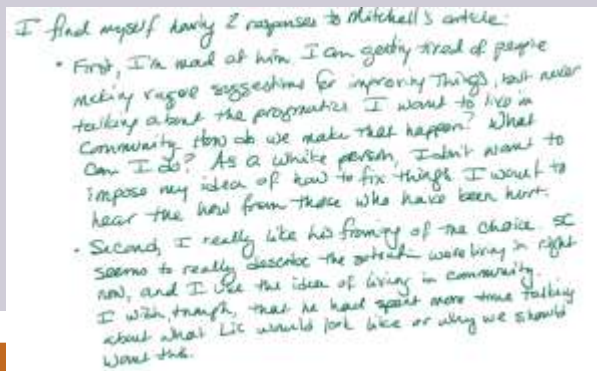 I find myself having 2 responses to Mitchell's article:
• First, I'm mad at him. I am getting tired of people
making vague suggestions for improving things, but never
talking about the pragmatics. I want to live in
Community. How do we make that happen? What
Can I do? As a white person, I don't want to
impose my idea of how to fix things. I want to
hear the how from those who have been hurt.
• Second, I really like his framing of the choice. SC
seems to really describe the we're living in right
now, and I like the idea of living in community.
I wish, though, that he had spent more time talking
about what LiC would look like or why we should
want this.